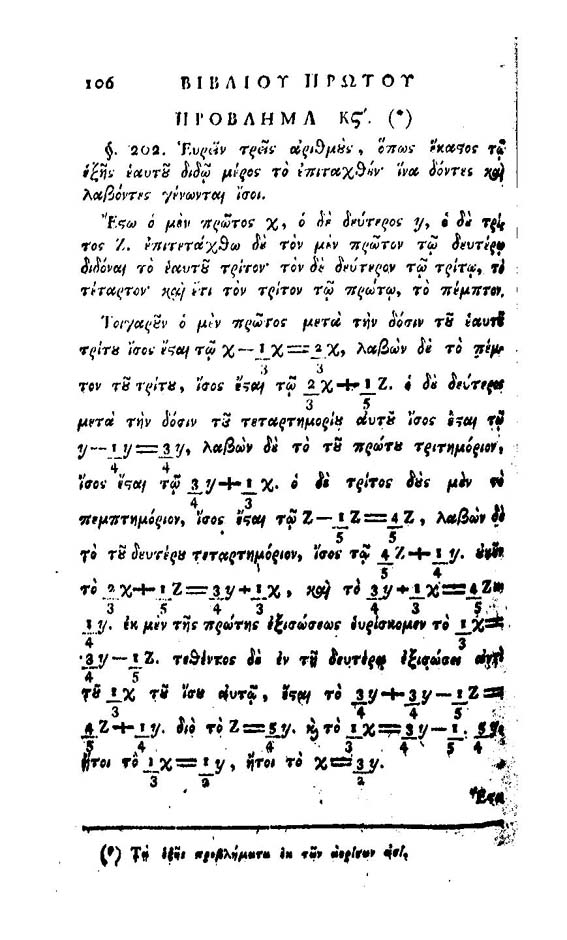 106 ΒΙΒΛΙΟΥ ΠΡΩΤΟΥ
ΠΡΟΒΛΗΜΑ Κϛ΄. (*)
§. 202. Ἑυρεῖν τρεῖς ἀριθμὸς, ὅπως ἕκαστος τῷ
ἑξῆς ἑαυτοῦ διδῷ μέρος τὸ ἐπιταχθέν· ἵνα δόντες καὶ
λαβόντες γένωνται ἴσοι.
Ἔστω ὁ μὲν πρῶτος χ, ὁ δὲ δεύτερος y, ὁ δὲ τρί-
τος Z. ἐπιτετάχθω δὲ τὸν μὲν πρῶτον τῷ δευτέρῳ
διδόναι τὸ ἑαυτοῦ τρίτον· τὸν δὲ δεύτερον τῷ τρίτῳ, τὸ
τέταρτον· καὶ ἔτι τὸν τρίτον τῷ πρώτῳ, τὸ πέμπτον.
Τοιγαροῦν ὁ μὲν πρῶτος μετὰ τὴν δόσιν τοῦ ἑαυτοῦ
τρίτου ἴσος ἔσται τῷ χ — 1/3 χ = 2/3 χ, λαβὼν δὲ τὸ πέμ-
τον τοῦ τρίτου, ἴσος ἔσται τῷ 2/3 χ + 1/5 Z. ὁ δὲ δεύτερος
μετὰ τὴν δόσιν τοῦ τεταρτημορίου αὑτοῦ ἴσος ἔσται τῷ
y — 1/4 y = 3/4 y, λαβὼν δὲ τὸ τοῦ πρώτου τριτημόριον,
ἴσος ἔσται τῷ 3/4 y + 1/3 χ. ὁ δὲ τρίτος δοὺς μὲν τὸ
πεμπτημόριον, ἴσος ἔσται τῷ Z — 1/5 Z = 4/5 Z, λαβὼν δὲ
τὸ τοῦ δευτέρου τεταρτημόριον, ἴσος τῷ 4/5 Z + 1/4 y. οὐκοῦν
τὸ 2/3 χ + 1/5 Z = 3/4 y + 1/3 χ, καὶ τὸ 3/4 y + 1/3 χ = 4/5 Z +
1/4 y. ἐκ μὲν τῆς πρώτης ἐξισώσεως ἑυρίσκομεν τὸ 1/3 χ =
3/4 y — 1/5 Z. τεθέντος δὲ ἐν τῇ δευτέρᾳ ἐξισώσει ἀντὶ
τοῦ 1/3 χ τοῦ ἴσου αὐτῷ, ἔσται τὸ 3/4 y + 3/4 y — 1/5 Z =
4/5 Z + 1/4 y. διὸ τὸ Z = 5/4 y. καὶ τὸ 1/3 χ = 3/4 y — 1/5 . 5/4 y,
ἤτοι τὸ 1/3 χ = 1/2 y, ἤτοι τὸ χ = 3/2 y.
Ἔστω
(*) Τὰ ἑξῆς προβλήματα ἐκ τῶν ἀορίστων εἰσί.